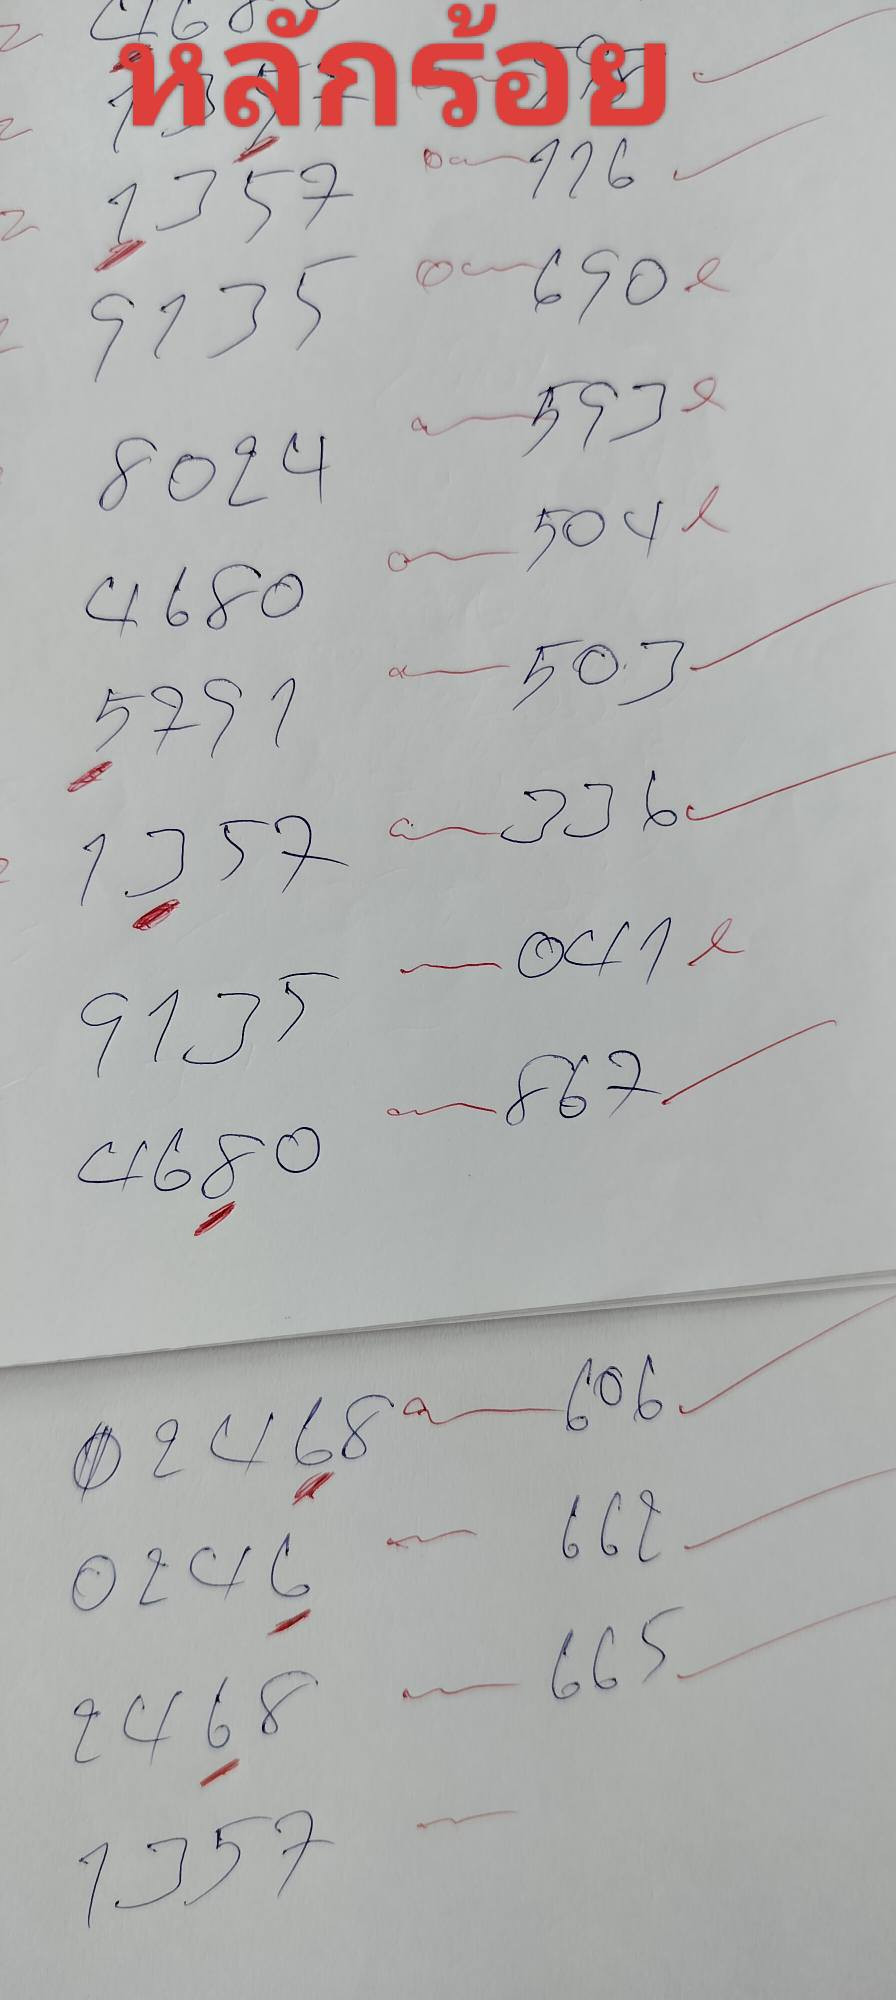 468
หลักร้อย
1357 116
9135 690
8024 593
4680 504
5791 503
1357 336
9135 041
4680 867
02468 606
0246 662
2468 665
1357